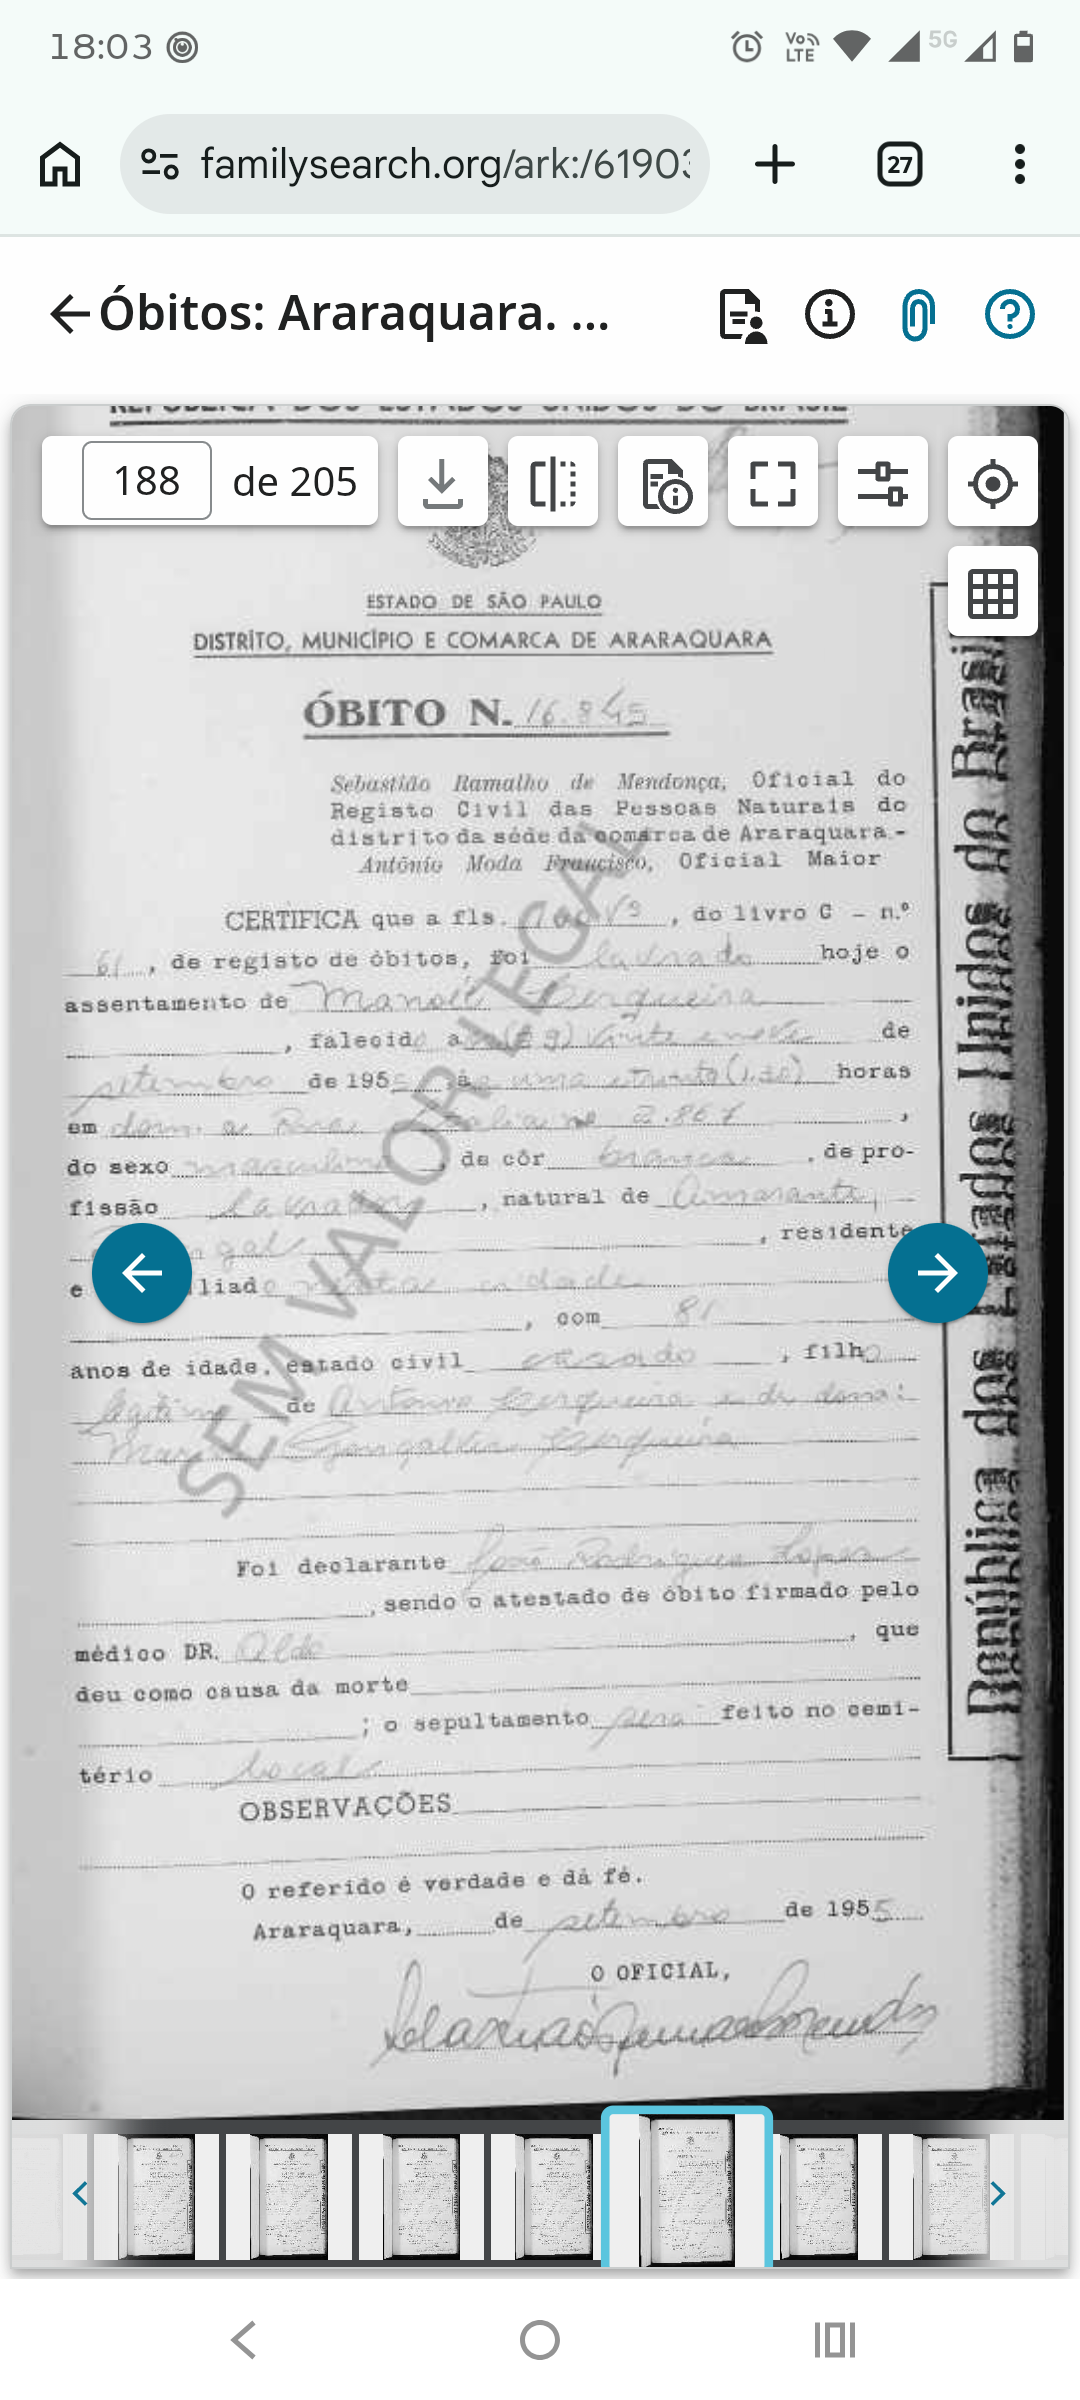 18:03
Vo LTE 5G
familysearch.org/ark:/61903
27
Óbitos: Araraquara. ...
REPÚBLICA DOS ESTADOS UNIDOS DO BRASIL
188 de 205
ESTADO DE SÃO PAULO
DISTRITO, MUNICÍPIO E COMARCA DE ARARAQUARA
ÓBITO N. 16.845
Sebastião Ramalho de Mendonça, Oficial do
Registo Civil das Pessoas Naturais do
distrito da séde da comarca de Araraquara.-
Antônio Moda Francisco, Oficial Maior
CERTIFICA que a fls. , do livro C - n.º
61, de registo de óbitos, foi lavrado hoje o
assentamento de Manoel Cerqueira
, falecido a vinte e nove de
setembro de 195 às uma e trinta (1,30) horas
em dom. a Rua nº 2.867 ,
do sexo masculino, de côr branca, de pro-
fissão lavrador, natural de Amarante,
gal, residente
e liado nesta cidade
, com 81
anos de idade, estado civil casado, filho
legítimo de Antonio Cerqueira e de dona:
Maria Gonçalves Cerqueira
Foi declarante João Rodrigues Lopes
, sendo o atestado de óbito firmado pelo
médico DR. Aldo , que
deu como causa da morte
; o sepultamento será feito no cemi-
tério local
OBSERVAÇÕES
O referido é verdade e dá fé.
Araraquara, de setembro de 1955
O OFICIAL,
SEM VALOR LEGAL
República dos Estados Unidos do Brasil